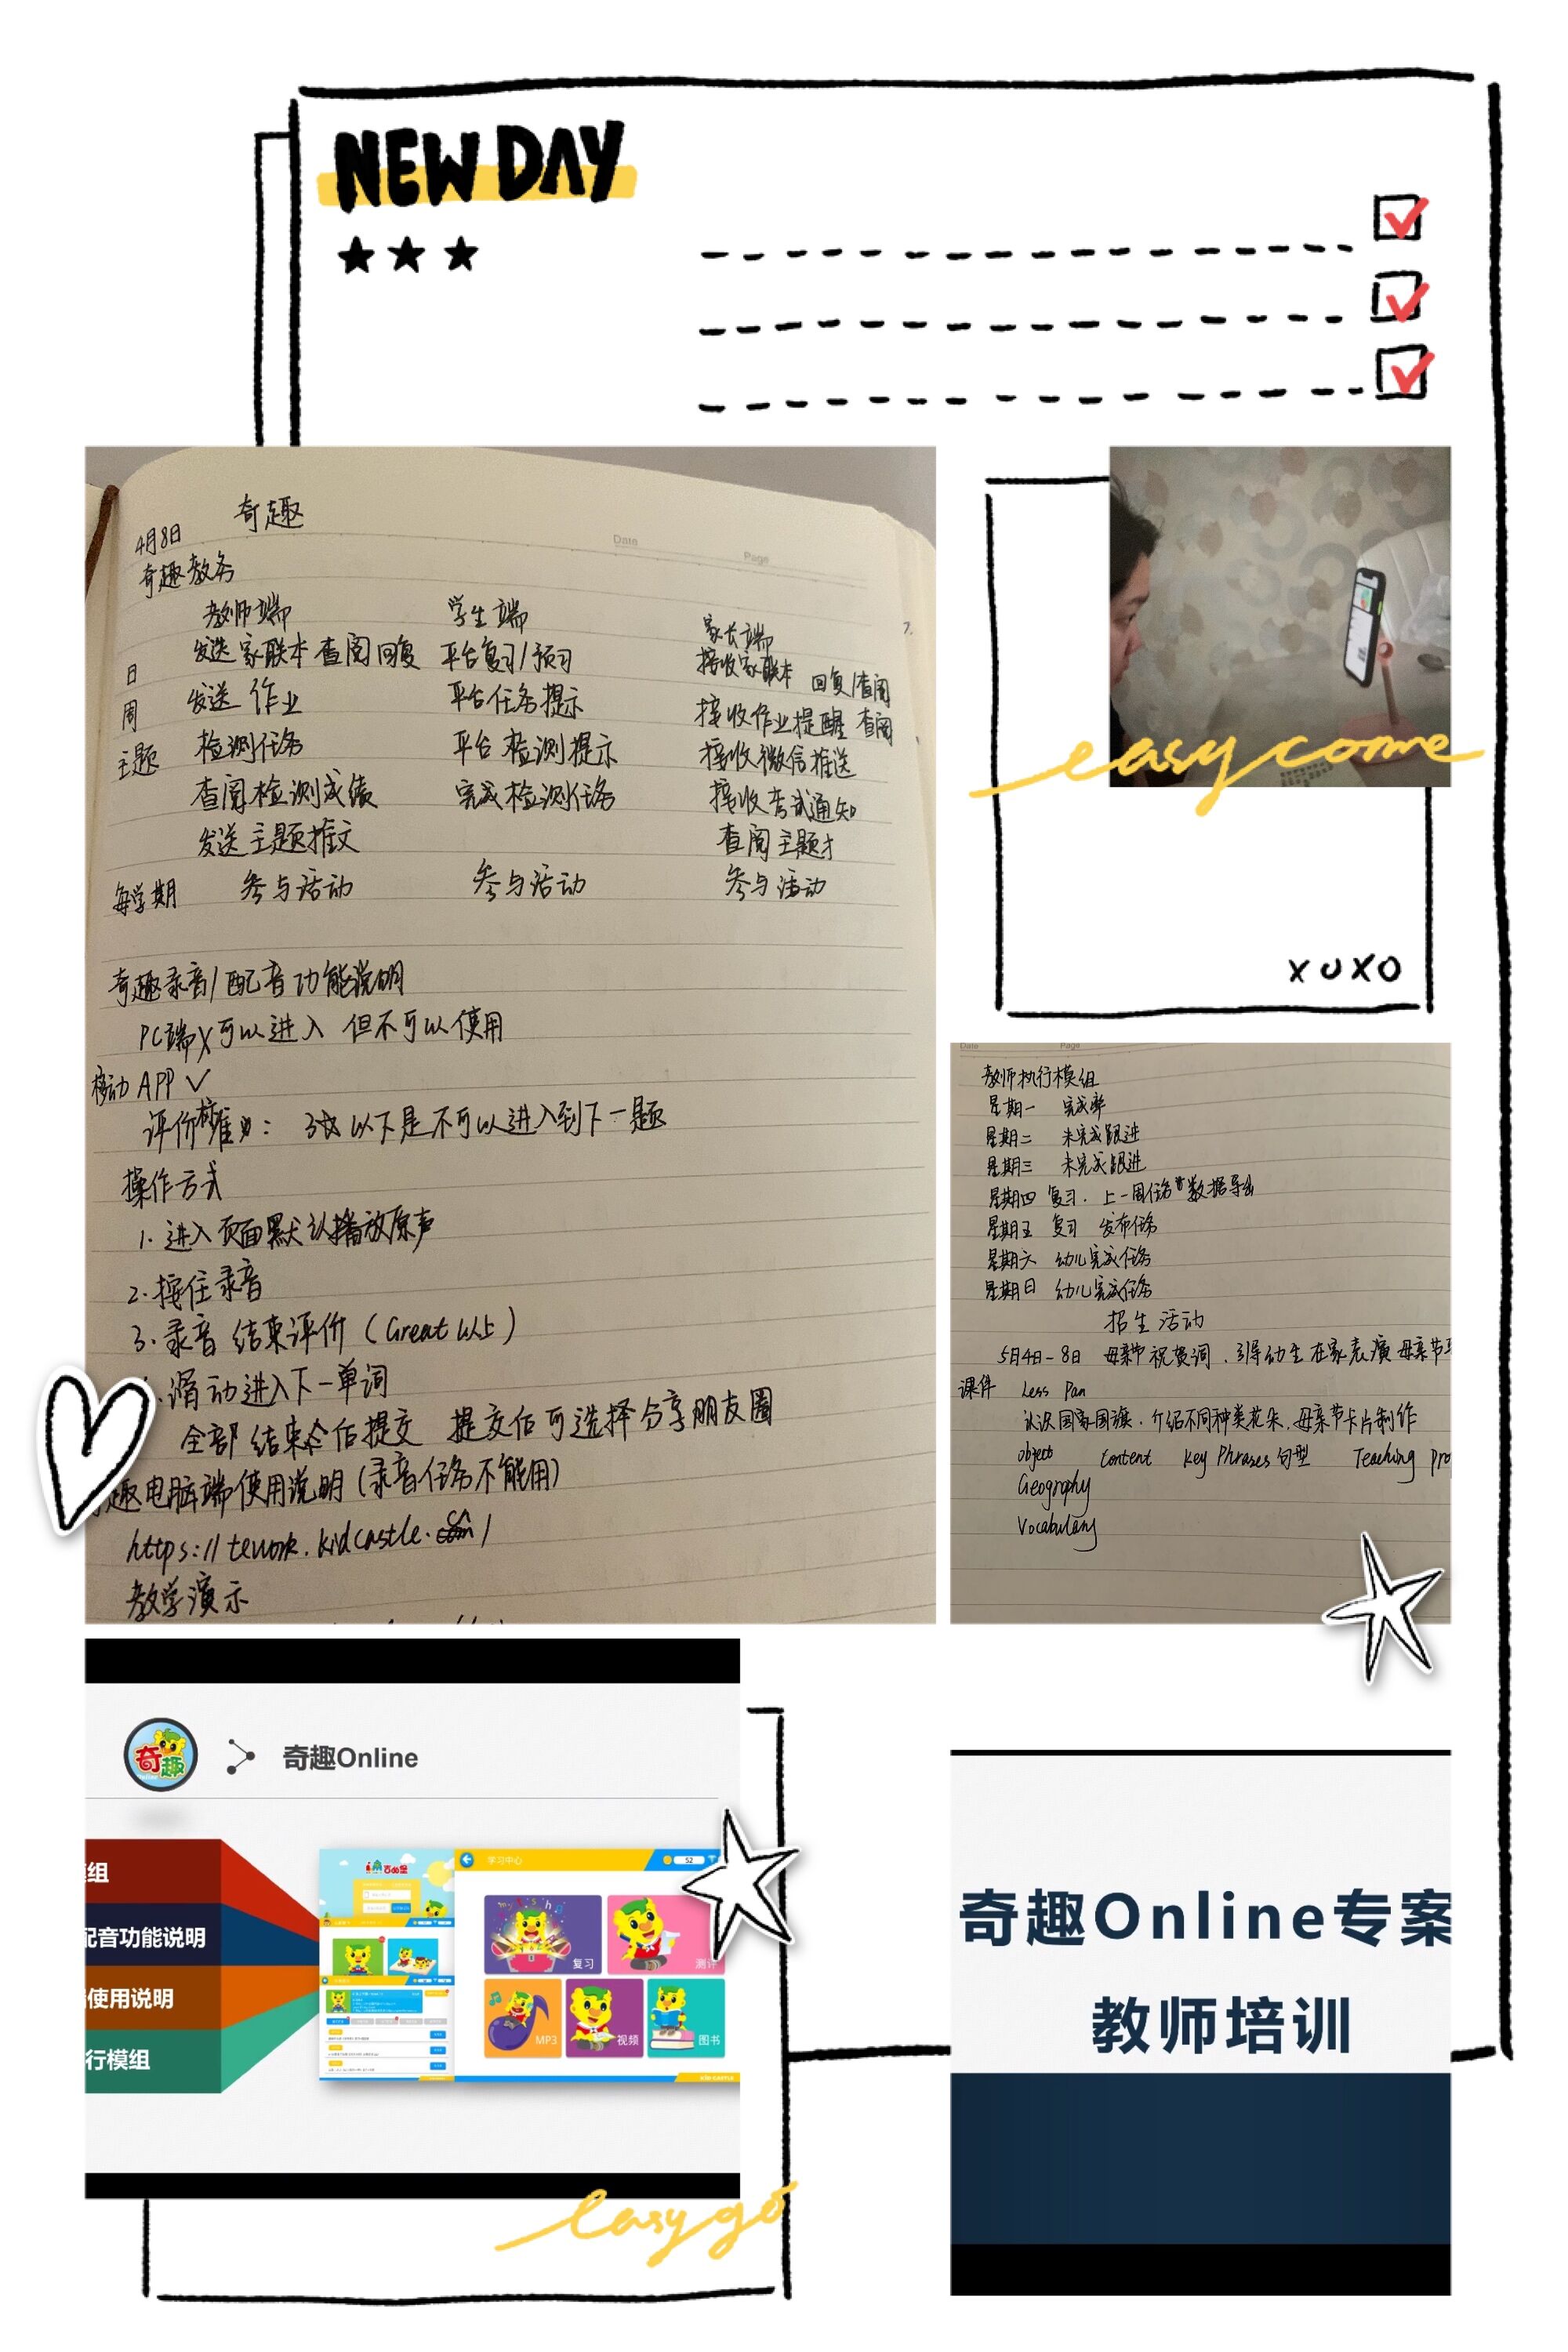 NEW DAY
Date Page
4月8日 奇趣
奇趣教务
教师端 学生端 家长端
日 发送家联本 查阅 回复 平台复习/预习 接收家联本 回复/查阅
周 发送 作业 平台任务提示 接收作业提醒 查阅
主题 检测任务 平台 检测提示 接收微信推送
查阅检测成绩 完成检测任务 接收考试通知
发送主题推文 查阅主题
每学期 参与活动 参与活动 参与活动
奇趣录音/配音功能说明
PC端 X 可以进入 但不可以使用
移动APP ✓
评价标准为: 3次以下是不可以进入到下一题
操作方式
1. 进入页面默认播放原声
2. 按住录音
3. 录音 结束评价 (Great以上)
滑动进入下一单词
全部 结束 后提交 提交后可选择分享朋友圈
趣电脑端使用说明 (录音任务不能用)
https://tework.kidcastle.
教学演示
easy come
XOXO
Date Page
教师执行模组
星期一 完成率
星期二 未完成跟进
星期三 未完成跟进
星期四 复习. 上一周任务 数据导出
星期五 复习 发布任务
星期六 幼儿完成任务
星期日 幼儿完成任务
招生活动
5月4日-8日 母亲节 祝贺词. 引导幼生在家表演 母亲节
课件 Less Pan
认识国家国旗. 介绍不同种类花朵. 母亲节卡片制作
object Content Key Phrases 句型 Teaching pro
Geography
Vocabulary
奇趣
奇趣Online
组
配音功能说明
使用说明
行模组
吉的堡
学习中心
52
复习
测评
MP3
视频
图书
easy go
奇趣Online专案
教师培训